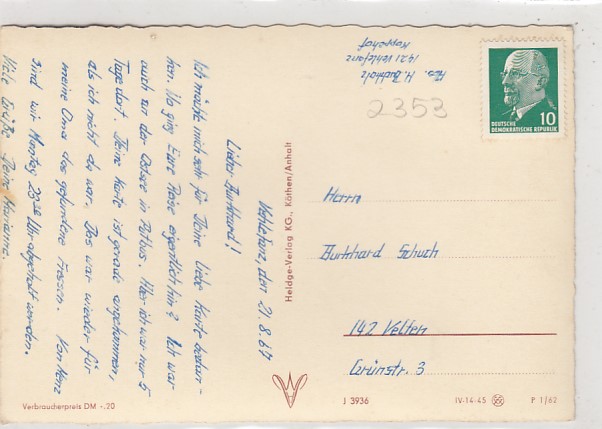 Vehlefanz, den 21.8.67
Lieber Burkhard!
Ich möchte mich sehr für Deine liebe Karte bedan-
ken. Wo ging Eure Reise eigentlich hin? Ich war
auch an der Ostsee in Putbus. Hier ist war nur 5
Tage dort. Deine Karte ist gerade angekommen,
als ich nicht da war. Das war wieder für
meine Oma das gefundene Fressen. Von
sind wir Montag 23 Uhr abgeholt worden.
Viele Grüße Deine Marianne.
Abs. H. Buchholz
1421 Vehlefanz
Koppehof
2353
10
DEUTSCHE
DEMOKRATISCHE REPUBLIK
Herrn
Burkhard Schuch
142 Velten
Grünstr. 3
Heldge-Verlag KG., Köthen/Anhalt
Verbraucherpreis DM -.20
J 3936
IV-14-45
P 1/62